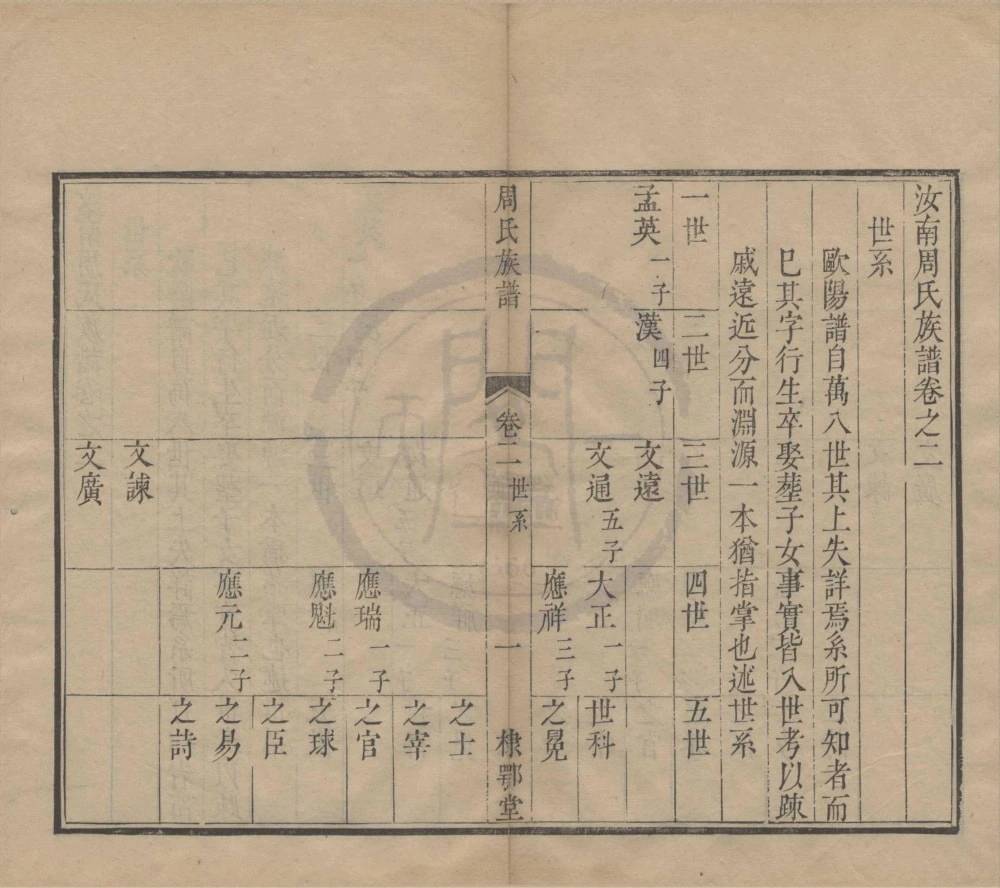 汝南周氏族譜卷之二
世系
歐陽譜自萬八世其上失詳焉系所可知者而
已其字行生卒娶塟子女事實皆入世考以踈
戚遠近分而淵源一本猶指掌也述世系
一世 二世 三世 四世 五世
孟英一子 漢四子 文遠
文通五子 大正一子 世科
應祥三子 之冕
周氏族譜 卷二 世系 一 棣鄂堂
之士
之宰
應瑞一子 之官
應魁二子 之球
之臣
應元二子 之易
之詩
文諫
文廣